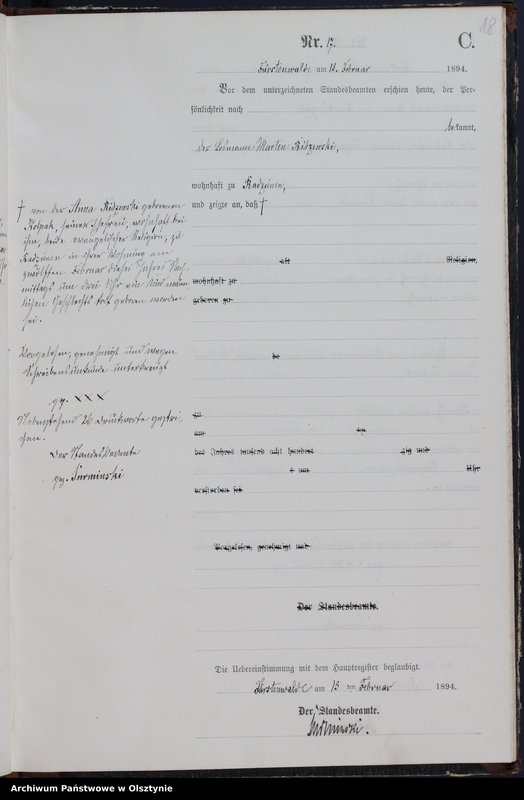 18
Nr. 17.
C.
Fürstenwalde am 13. Februar 1894.
Vor dem unterzeichneten Standesbeamten erschien heute, der Per-
sönlichkeit nach
bekannt,
der Losmann Martin Ridzewski,
wohnhaft zu Radzienen,
und zeigte an, daß †
† von der Anna Ridzewski geborenen
Kolpak, seiner Ehefrau, wohnhaft bei
ihm, beide evangelischer Religion, zu
Radzienen in ihrer Wohnung am
zwölften Februar dieses Jahres Nach-
mittags um drei Uhr ein Kind männ-
lichen Geschlechts tot geboren worden
sei.
Vorgelesen, genehmigt und wegen
Schreibensunkunde unterkreuzt
gez. XXX
Nebenstehend 20 Druckworte gestri-
chen.
Der Standesbeamte
gez. Surminski
alt Religion,
wohnhaft zu
geboren zu
zu
am ten
des Jahres tausend acht hundert zig und
um Uhr
verstorben sei
Vorgelesen, genehmigt und
Der Standesbeamte.
Die Uebereinstimmung mit dem Hauptregister beglaubigt.
Fürstenwalde am 13 ten Februar 1894.
Der Standesbeamte.
Surminski.
Archiwum Państwowe w Olsztynie